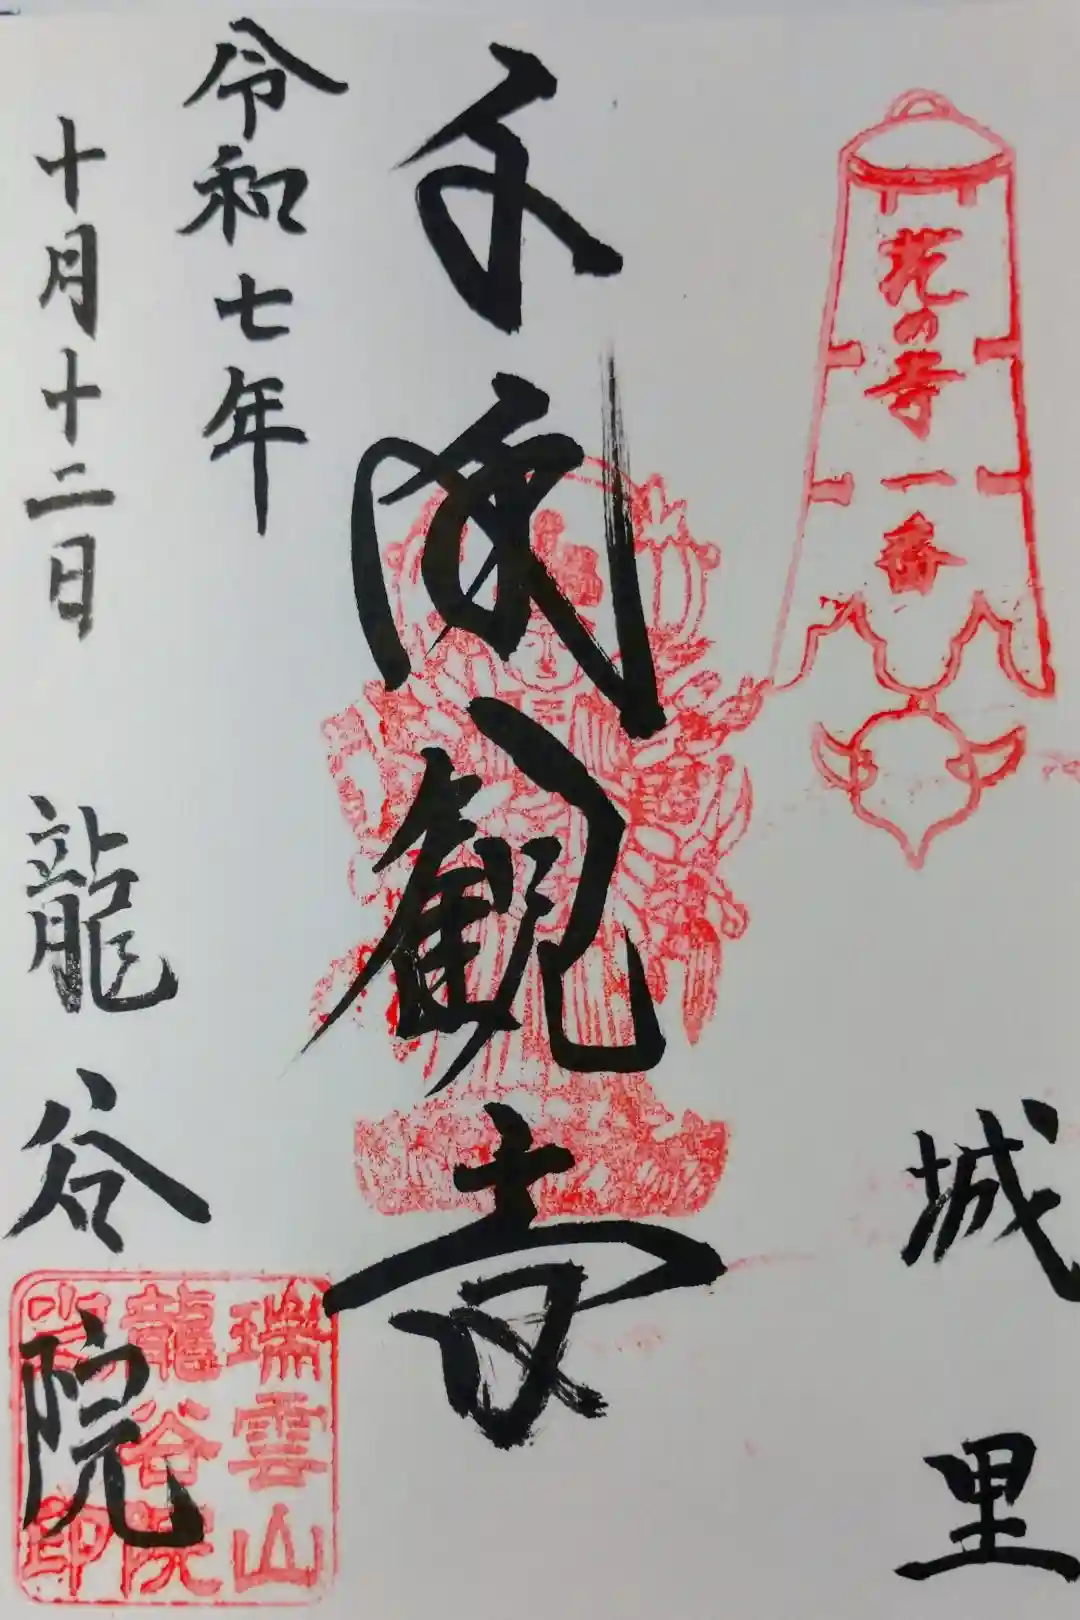 花の寺一番
城里
観音
令和七年
十月十二日
龍谷院
瑞雲山
龍谷院
印